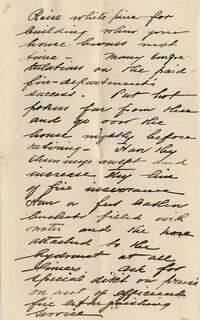 Rise white pine for
building when your
house burns next
time — Many Congra-
tulations on the paid-
fire-department's
success. — Put hot
pokers far from thee
and go over the
house nightly before
retiring — Have the
chimneys swept and
increase thy line
of fire insurance
Have a full
bucket filled with
water and the hose
attached to the
hydrant at all
times — ask for
special on
on acct of efficient
fire extinguishing
service